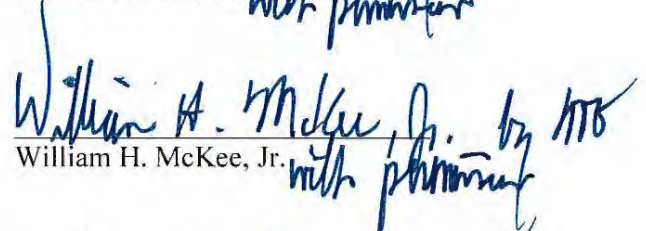 with permission
William H. McKee, Jr. by
William H. McKee, Jr.
with permission